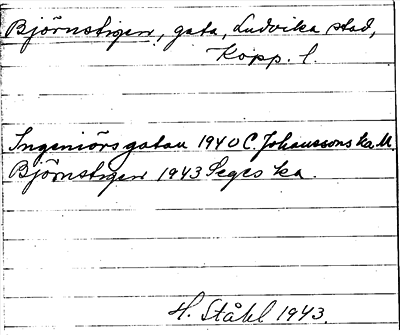 Björnstigen, gata, Ludvika stad,
Kopp. l.
Ingeniörsgatan 1940 C. Johanssons ka. M.
Björnstigen 1943 Seges ka.
H. Ståhl 1943.